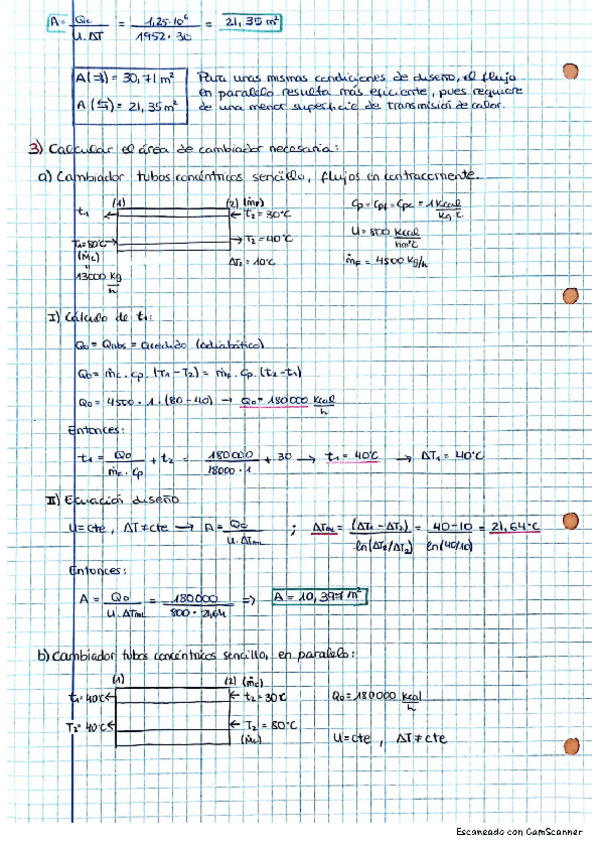 A = Qc / U.ΔT = 1,25·10⁶ / 1952·30 = 21,35 m²
A (⇉) = 30,71 m² Para unas mismas condiciones de diseño, el flujo
en paralelo resulta más eficiente, pues requiere
A (⇆) = 21,35 m² de una menor superficie de transmisión de calor.
3) Calcular el área de cambiador necesaria:
a) Cambiador tubos concéntricos sencillo, flujos en contracorriente.
(1) (2) (ṁF) Cp = Cpf = Cpc = 1 Kcal / Kg·ºC
t₁ t₂ = 30ºC
U = 800 Kcal / hm²ºC
T₁ = 80ºC T₂ = 40ºC
(Ṁc) ΔT₂ = 10ºC ṁF = 4500 Kg/h
"
13000 Kg / h
I) Cálculo de t₁:
Q₀ = Qabs = Qcedido (adiabático)
Q₀ = ṁc · Cp · (T₁ - T₂) = ṁF · Cp · (t₂ - t₁)
Q₀ = 4500 · 1 · (80 - 40) → Q₀ = 180000 Kcal / h
Entonces:
t₁ = Q₀ / ṁF · Cp + t₂ = 180000 / 18000 · 1 + 30 → t₁ = 40ºC → ΔT₁ = 40ºC
II) Ecuación diseño
U = cte, ΔT ≠ cte → A = Q₀ / U·ΔTmL ; ΔTmL = (ΔT₁ - ΔT₂) / ln(ΔT₁/ΔT₂) = 40-10 / ln(40/10) = 21,64ºC
Entonces:
A = Q₀ / U·ΔTmL = 180000 / 800 · 21,64 ⇒ A = 10,397 m²
b) Cambiador tubos concéntricos sencillo, en paralelo:
(1) (2) (ṁc)
t₁ = 40ºC t₂ = 30ºC Q₀ = 180000 Kcal / h
T₂ = 40ºC T₂ = 80ºC
(Ṁc) U = cte, ΔT ≠ cte
Escaneado con CamScanner